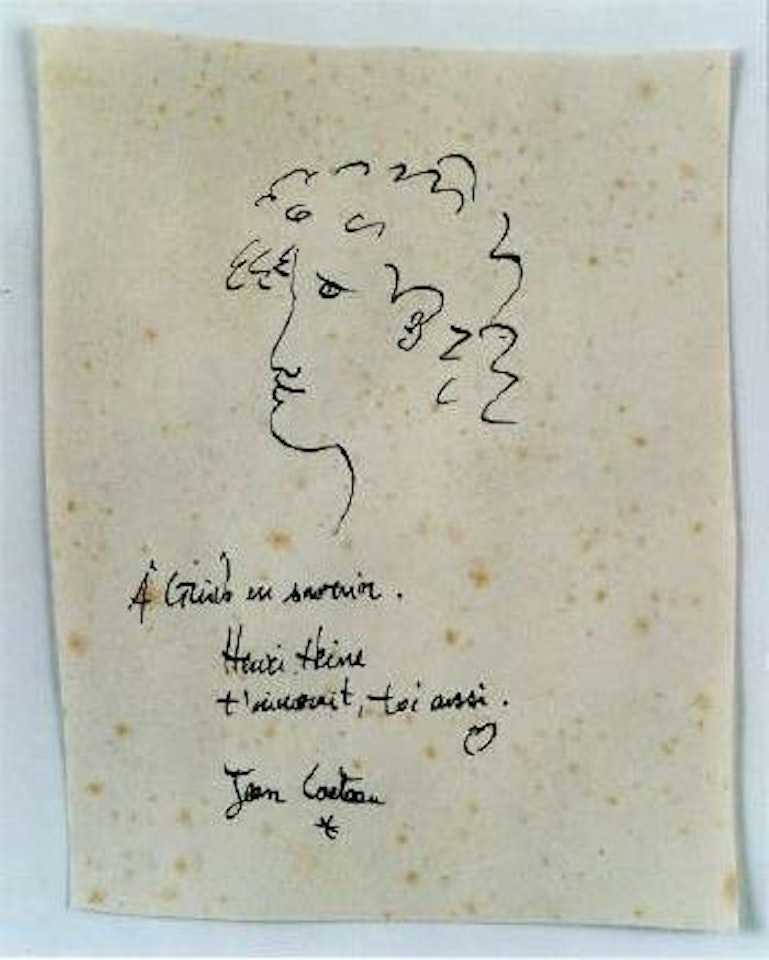 À en souvenir.
Henri Heine
t'aimerait, toi aussi.
Jean Cocteau